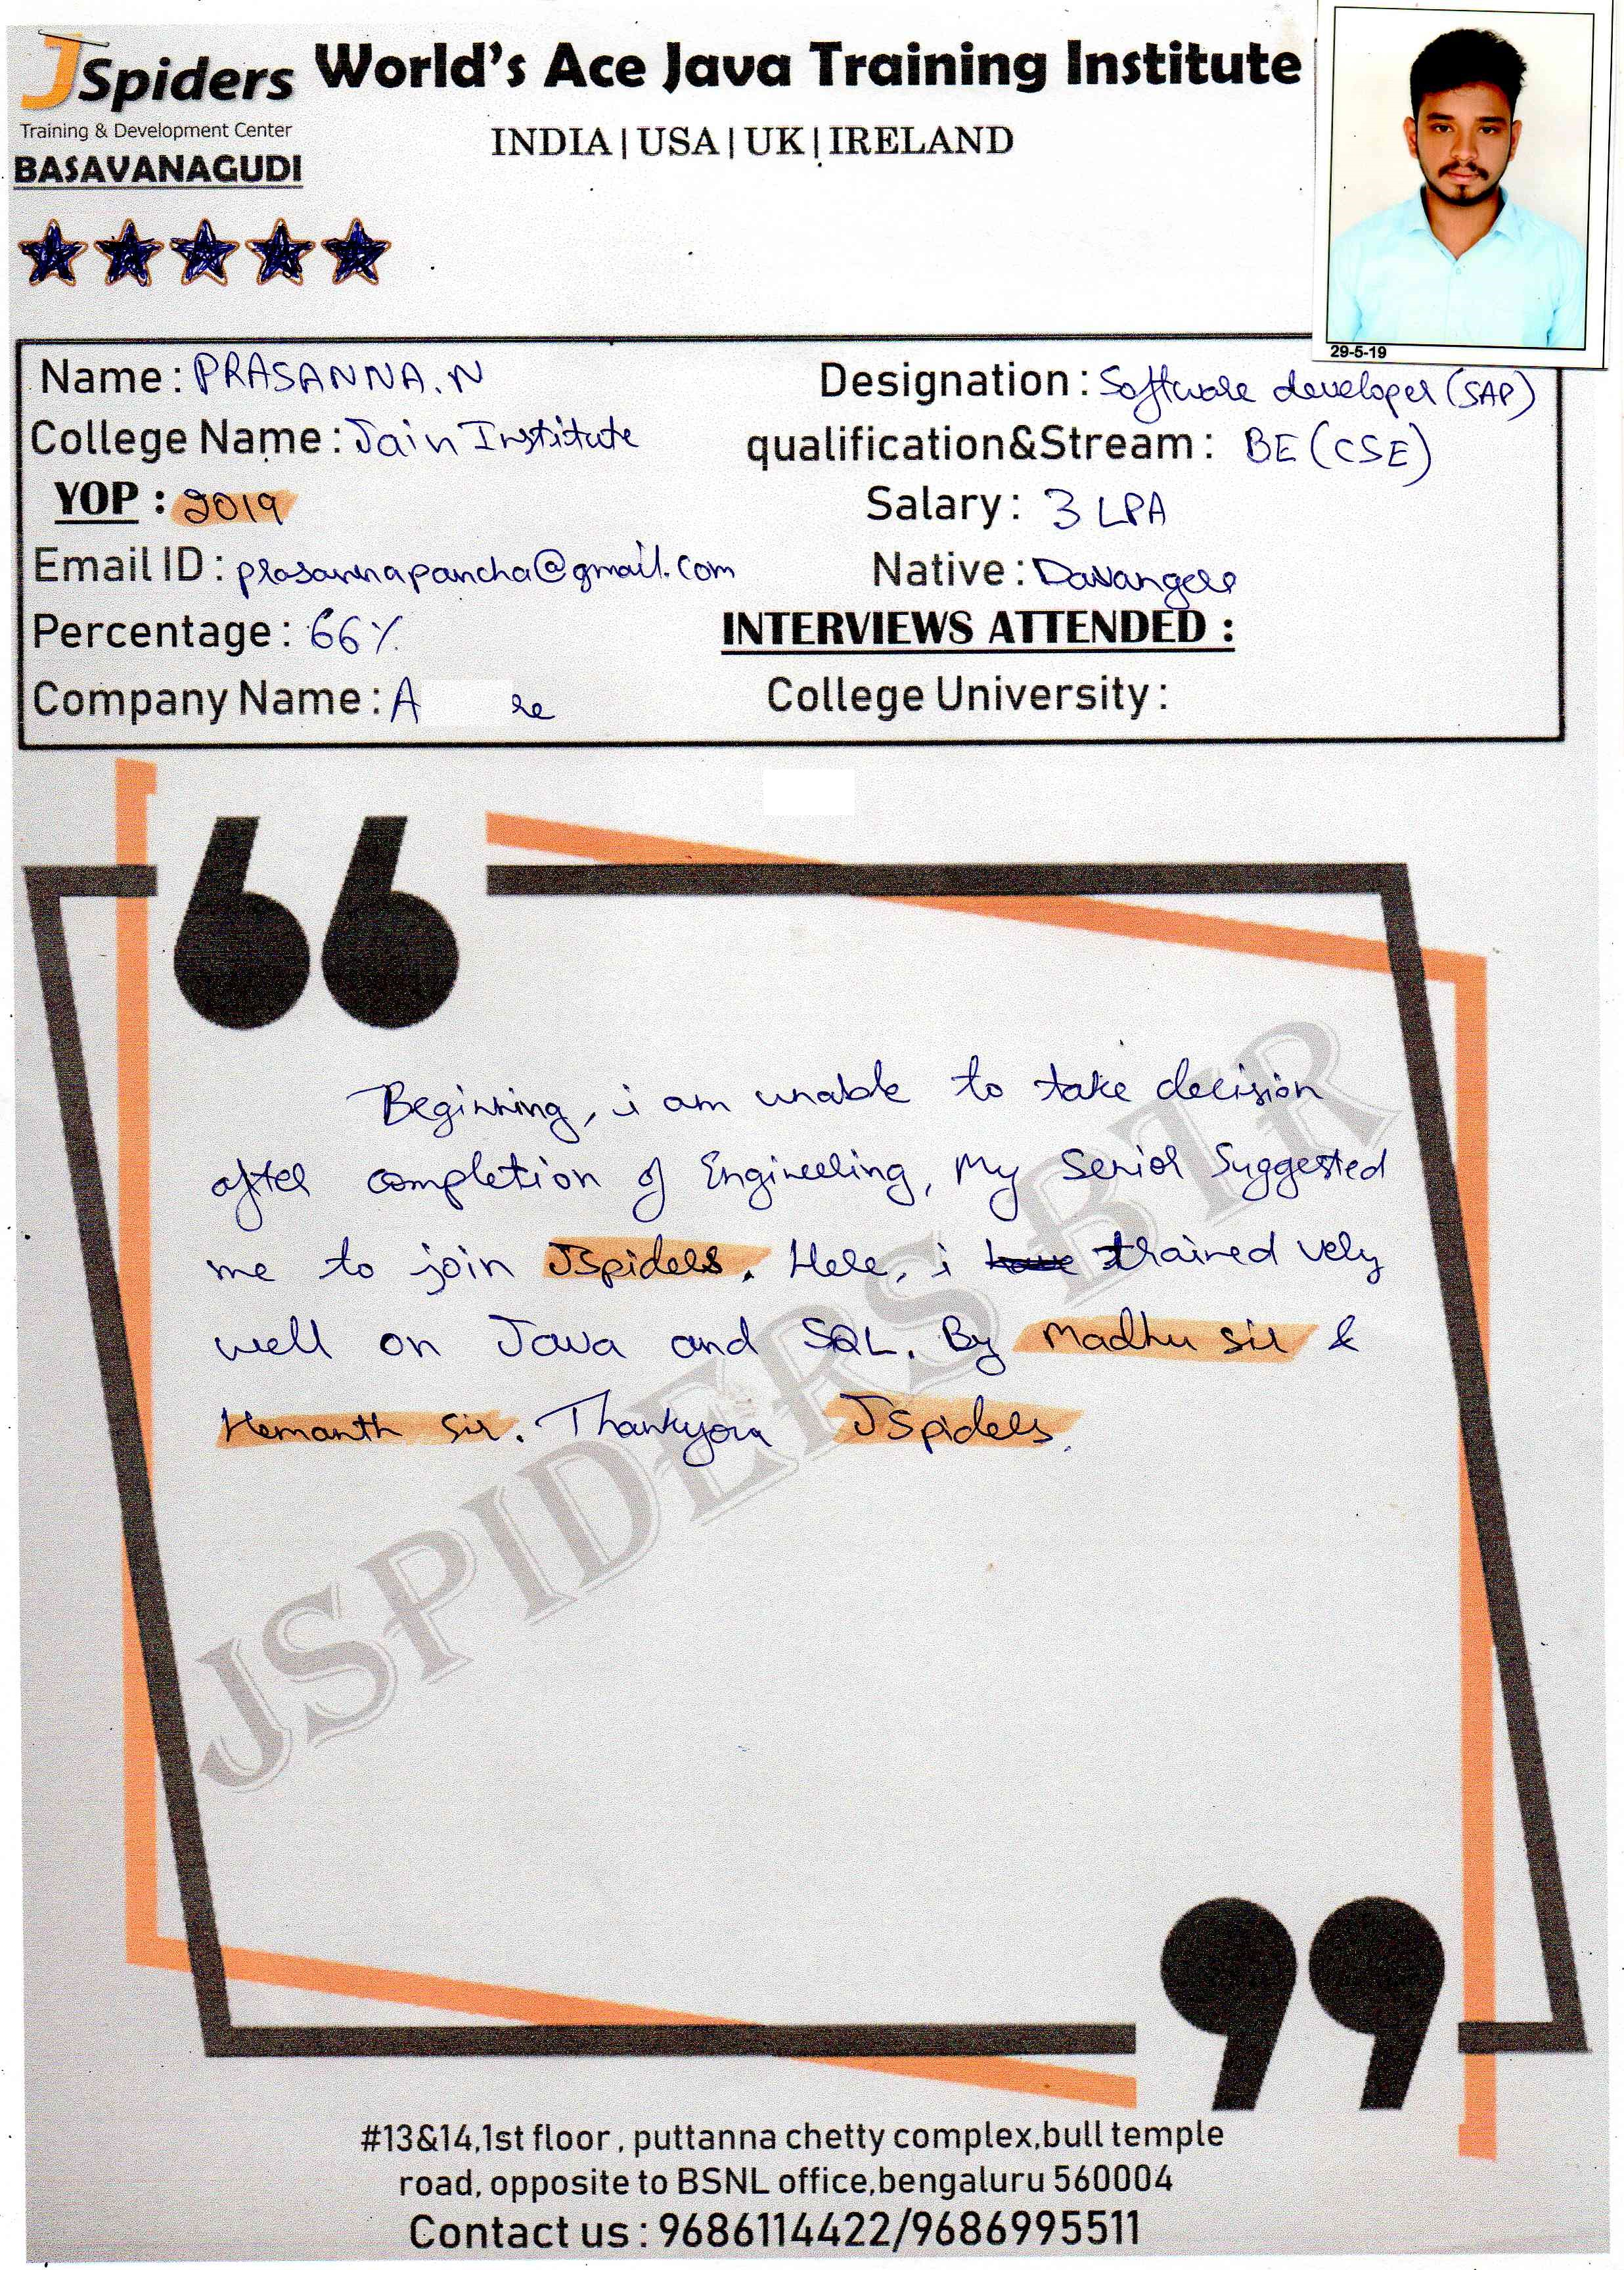 JSpiders World's Ace Java Training Institute
Training & Development Center
INDIA | USA | UK | IRELAND
BASAVANAGUDI
29-5-19
Name : PRASANNA. N
Designation : Software developer (SAP)
College Name : Jain Institute
qualification&Stream : BE (CSE)
YOP : 2019
Salary : 3 LPA
Email ID : prasannapancha@gmail.com
Native : Davangere
Percentage : 66%
INTERVIEWS ATTENDED :
Company Name : A re
College University :
Beginning, i am unable to take decision
after completion of Engineering, My Senior Suggested
me to join JSpiders. Here, i have trained very
well on Java and SQL. By Madhu sir &
Hemanth Sir. Thankyou JSpiders.
JSPIDERS BTR
#13&14,1st floor , puttanna chetty complex,bull temple
road, opposite to BSNL office,bengaluru 560004
Contact us : 9686114422/9686995511